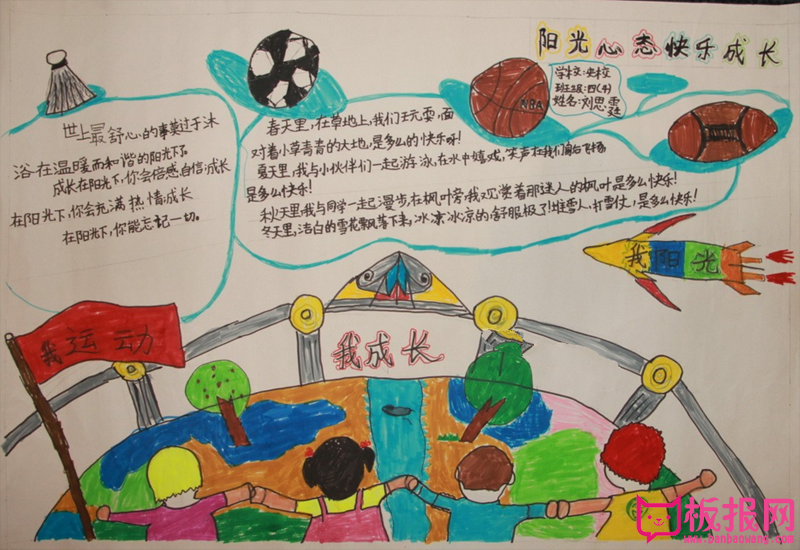 阳光心态快乐成长
学校:央校
班级:四(4)
姓名:刘思雯
NBA
世上最舒心的事莫过于沐
浴在温暖而和谐的阳光下。
成长在阳光下,你会倍感自信成长
在阳光下,你会充满热情成长
在阳光下,你能忘记一切。
春天里,在草地上,我们玩耍,面
对着小草青青的大地,是多么的快乐呀!
夏天里,我与小伙伴们一起游泳,在水中嬉戏,笑声在我们
是多么快乐!
秋天里,我与同学一起漫步在枫叶旁,我欣赏着那迷人的枫叶是多么快乐!
冬天里,洁白的雪花飘落下来,冰凉冰凉的舒服极了!堆雪人,打雪仗,是多么快乐!
我阳光
我运动
我成长
板报网
www.banbaowang.com